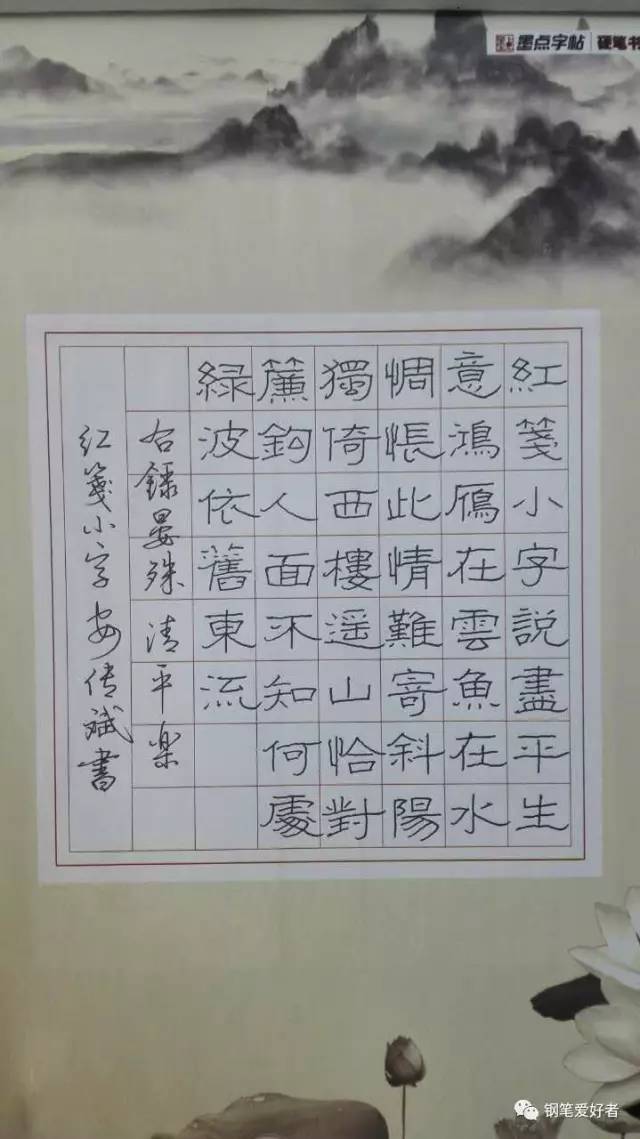 墨点字帖 硬笔书
紅箋小字說盡平生
意鴻鴈在雲魚在水
惆悵此情難寄斜陽
獨倚西樓遥山恰對
簾鉤人面不知何處
緑波依舊東流
右錄晏殊清平樂
红箋小字 安传斌書
钢笔爱好者